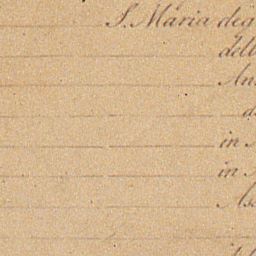 S. Maria deg
dell
An
d
in A
in A
As